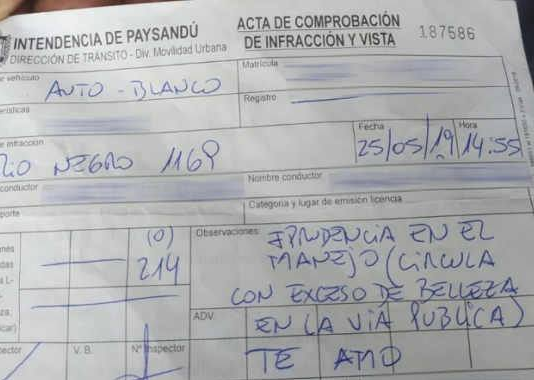 INTENDENCIA DE PAYSANDÚ
DIRECCIÓN DE TRÁNSITO - Div. Movilidad Urbana
ACTA DE COMPROBACIÓN
DE INFRACCIÓN Y VISTA
187586
vehículo
AUTO - BLANCO
Matrícula
erísticas
Registro
e infracción
RIO NEGRO 1169
Fecha
25/05/19
Hora
14:55
conductor
Nombre conductor
porte
Categoría y lugar de emisión licencia
nes
das
a L-
za,
icar)
(0)
214
Observaciones
IPRUDENCIA EN EL
MANEJO (CIRCULA
CON EXCESO DE BELLEZA
ADV.
EN LA VIA PUBLICA)
ector
V. B.
N° Inspector
TE AMO